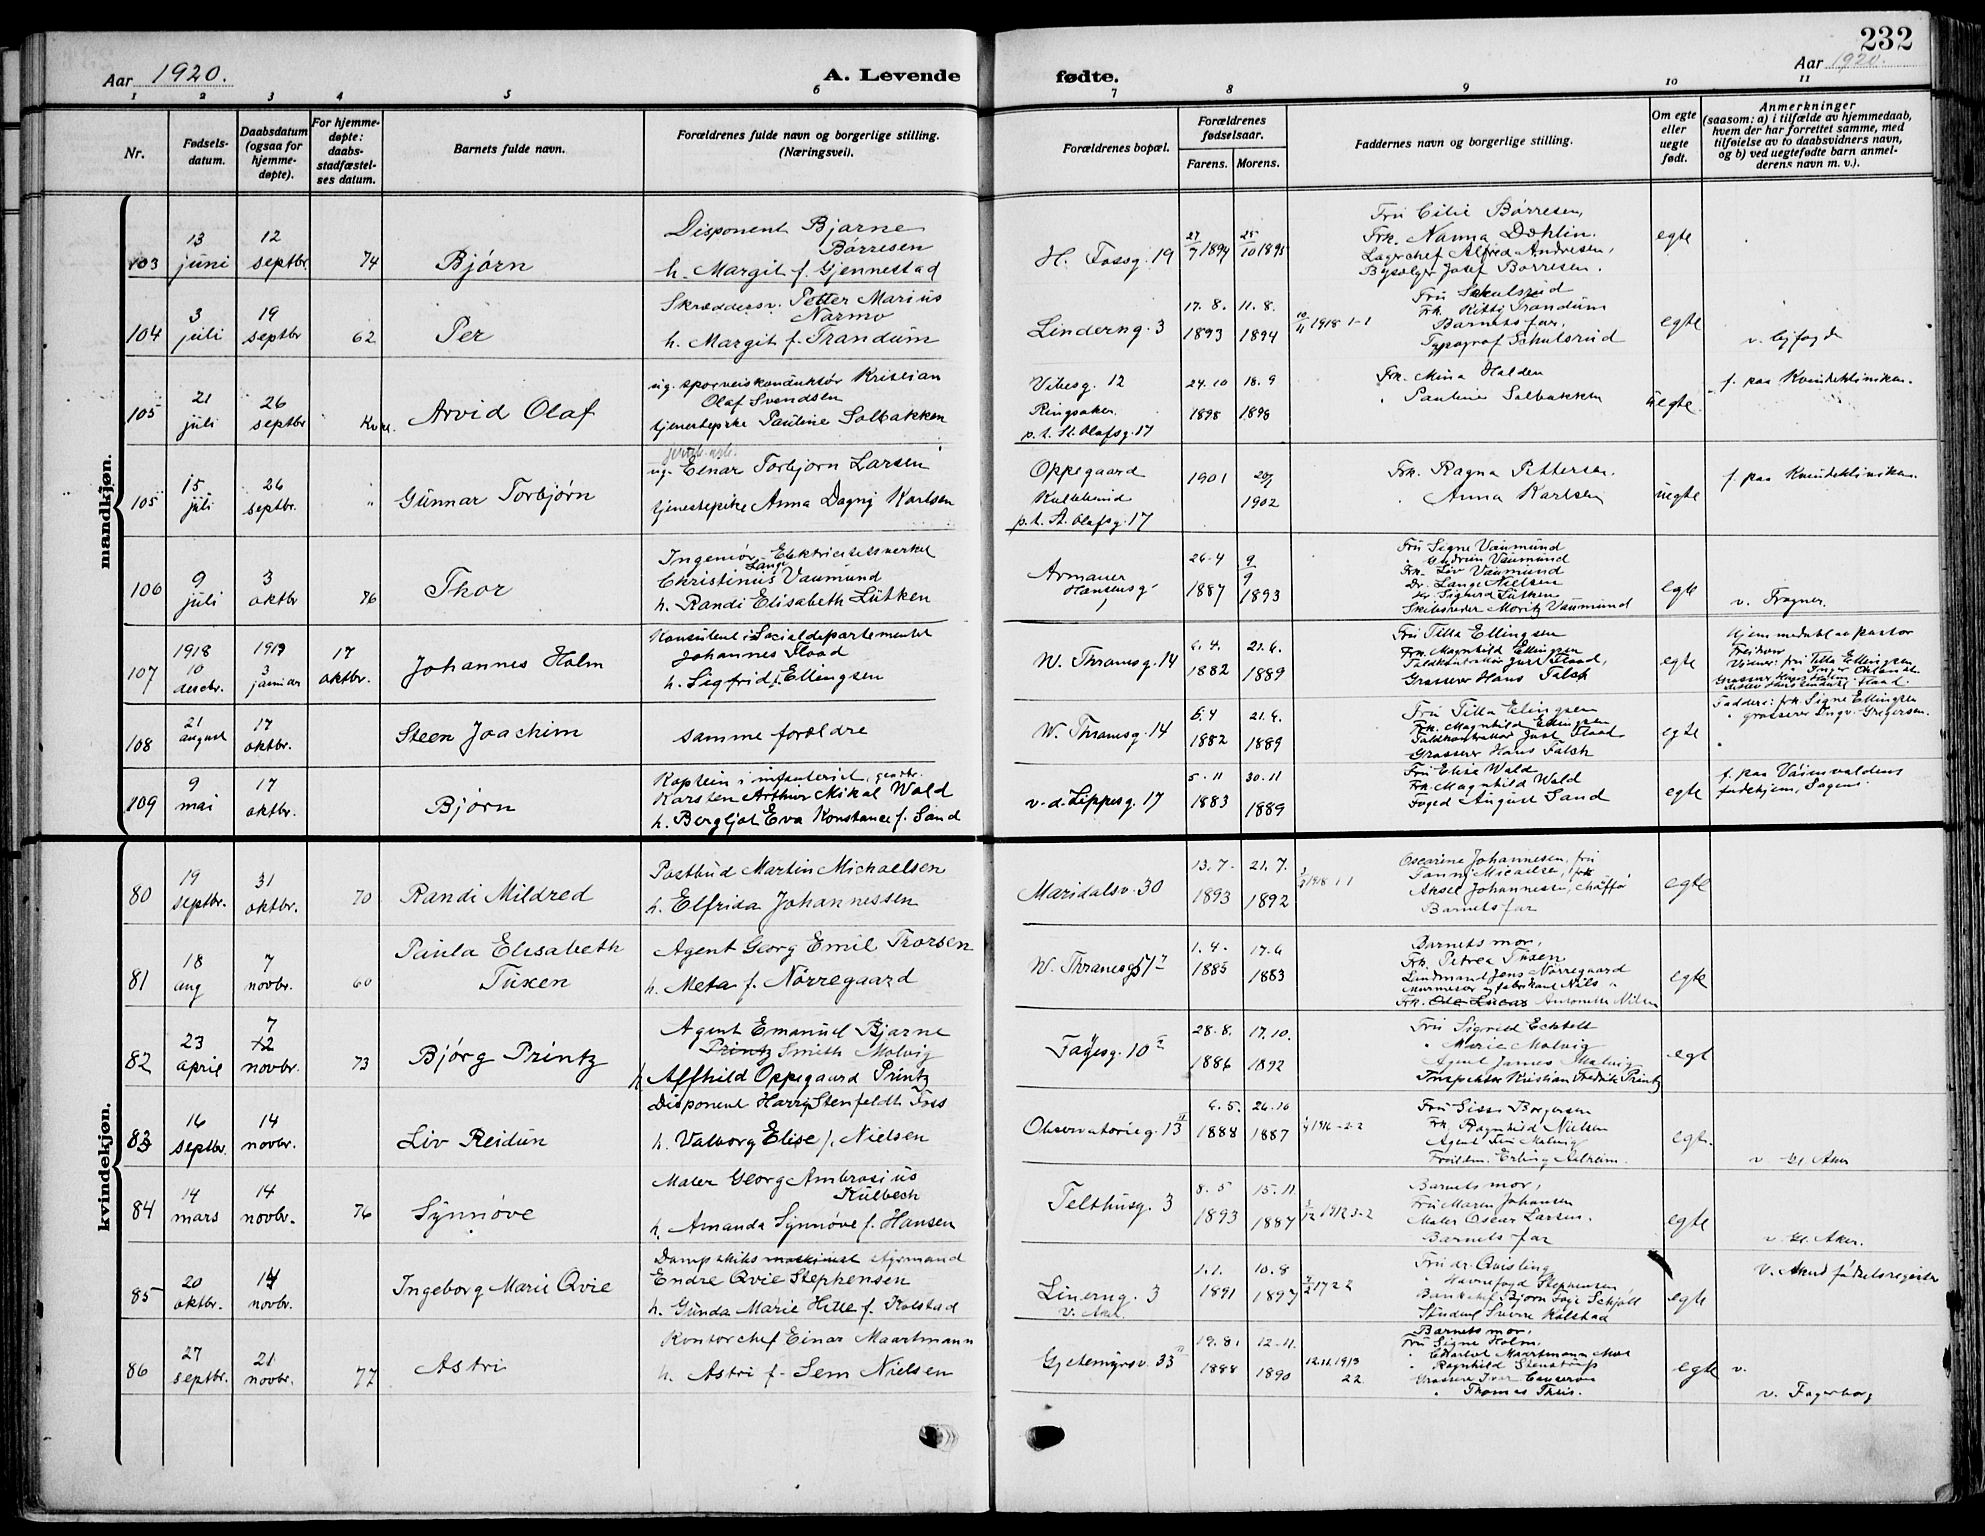 232
Aar 1920.
A. Levende
fødte.
Aar 1920.
1 2 3 4 5 6 7 8 9 10 11
Nr.
Fødsels-
datum.
Daabsdatum
(ogsaa for
hjemme-
døpte).
For hjemme-
døpte:
daabs-
stadfæstel-
ses datum.
Barnets fulde navn.
Forældrenes fulde navn og borgerlige stilling.
(Næringsvei).
Forældrenes bopæl.
Forældrenes
fødselsaar.
Farens. Morens.
Faddernes navn og borgerlige stilling.
Om egte
eller
uegte
født.
Anmerkninger
(saasom: a) i tilfælde av hjemmedaab,
hvem der har forrettet samme, med
tilføielse av to daabsvidners navn,
og b) ved uegtefødte barn anmel-
derens navn m. v.).
mandkjøn.
103 13 juni 12 septbr 74 Bjørn
Disponent Bjarne
Børresen
h. Margit f. Gjennestad
H. Fossg. 19
27/7 1894 25/10 1895
Fru Cilie Børresen,
Frk. Nanna Dæhlin.
Lagerchef Alfred Andresen,
Børresen.
egte
104 3 juli 19 septbr 62 Per
Skræddersv. Petter Marius
Narmo
h. Margit f. Trandum
Linderng. 3
17. 8. 1893 11. 8. 1894
10/11 1918 1-1
Fru Schulsrud
Frk. Kitti Trandum
Barnets far,
Typograf Schulsrud
egte
v. byfogd
105 21 juli 26 septbr Kvkl. Arvid Olaf
ug. sporveiskonduktør Kristian
Olaf Svendsen
tjenestepike Pauline Solbakken
Vibesg. 12
Ringsaker.
p.t. St. Olafsg. 17
24. 10 1898 18. 9 1898
Frk. Mina Halden
" Pauline Solbakken
uegte.
f. paa Kvindekliniken.
105 15 juli 26 septbr. " Gunnar Torbjørn
ug. Einar Torbjørn Larsen
tjenestepike Anna Dagny Karlsen
Oppegaard
Kullebund
p.t. St. Olafsg. 17
1901 20/7 1902
Frk. Ragna Pettersen.
" Anna Karlsen
uegte
f. paa Kvindekliniken
106 9 juli 3 oktbr 86 Thor
Ingeniør Elektricitetsverket
Christinus Lange Vaumund
h. Randi Elisabeth Lütken
Armauer
Hansensg.
26. 4 1887 9/9 1893
Fru Signe Vaumund
Vaumund
Frk. Liv Vaumund
Dr. Lange Nielsen
Sigurd Lütken
Skibsreder Moritz Vaumund
egte
v. Frogner.
107 1918 10 decbr. 1919 3 januar 17 oktbr. Johannes Holm
Konsulent i Socialdepartementet
Johannes Flood
h. Sigfrid f. Ellingsen
W. Thranesg. 14
6. 4. 1882 21. 6. 1889
Fru Tilla Ellingsen
Frk. Magnhild Ellingsen
Toldkontrollør Just Flood,
Grosserer Hans Falch
egte
Hjemmedøbt av pastor
Vidner: fru Tilla Ellingsen
Faddere: frk Signe Ellingsen
" grosserer Ingv. Gregersen.
108 21 august 17 oktbr. Steen Joachim
samme foreldre
W. Thranesg. 14
6. 4 1882 21. 6. 1889
Fru Tilla Ellingsen
Frk. Magnhild Ellingsen
Toldkontrollør Just Flood
Grosserer Hans Falch
egte
109 9 mai 17 oktbr. Bjørn
Kaptein i infanteriet,
Karsten Arthur Mikal Wold
h. Bergljot Eva Konstance f. Sand
v. d. Lippesg. 17
5. 11 1883 30. 11 1889
Fru Elise Wold
Frk. Magnhild Wold
Foged August Sand
egte
f. paa
fødehjem, Sagene
kvindekjøn.
80 19 septbr. 31 oktbr. 70 Randi Mildred
Postbud Martin Michaelsen
h. Elfrida Johannessen
Maridalsv. 30
13. 7. 1893 21. 7. 1892
Oscarine Johannesen, fru
Aksel Johannesen,
Barnets far
egte
81 18 aug 7 novbr. 60 Paula Elisabeth
Tuxen
Agent Georg Emil Thorsen
h. Meta f. Nørregaard
W. Thranesg. 51
1. 4. 1885 17. 6 1883
Barnets mor,
Frk. Petrea Tuxen
Jens Nørregaard
Frk. Antonette Nilsen
egte
82 23 april 7 novbr. 73 Bjørg Printz
Agent Emanuel Bjarne
Printz Smith Malvig
h. Alfhild Oppegaard Printz
Fayesg. 10
28. 8. 1886 17. 10. 1892
Fru Sigrid
" Marie Malvig
Agent James Malvig
Inspektør Kristian Fredrik Printz
egt
83 16 septbr. 14 novbr. Liv Reidun
Disponent Harry Stenfeldt Foss
h. Valborg Elise f. Nielsen
Observatorieg. 13
6. 5. 1888 26. 10 1887
Fru Borgersen
Frk. Ragnhild Nielsen
Agent Malvig
Erling
egt.
v. Gl. Aker
84 14 mars 14 novbr. 76 Synnøve
Maler Georg Ambrosius
Kulbech
h. Amanda Synnøve f. Hansen
Telthusg. 3
8. 5 1893 15. 11. 1887
Barnets mor,
Fru Maren Johansen
Maler Oscar Larsen.
Barnets far
egte
v. Gl. Aker.
85 20 oktbr. 14 novbr. Ingeborg Marie Qvie
Dampskibs maskinist styrmand
Endre Qvie Stephensen
h. Gunda Marie Hille f. Kolstad
Linerng. 3
V. Aker.
1. 1. 1891 10. 8 1897
Fru dr. Quisling
" Havnefogd Stephensen
Bankchef Bjørn Schjøll
Student Sverre Kolstad
egte
v. fødselsregister
86 27 septbr. 21 novbr. 77 Astri
Kontorchef Einar Maartmann
h. Astri f. Sem Nielsen
Gjetemyrsv. 33
19. 8. 1888 12. 11. 1890
12. 11. 1913
22
Barnets mor,
Fru Signe Holm.
" Ragnhild Stenstrup
" Thomas Theis.
egte
v.
v. Fagerborg